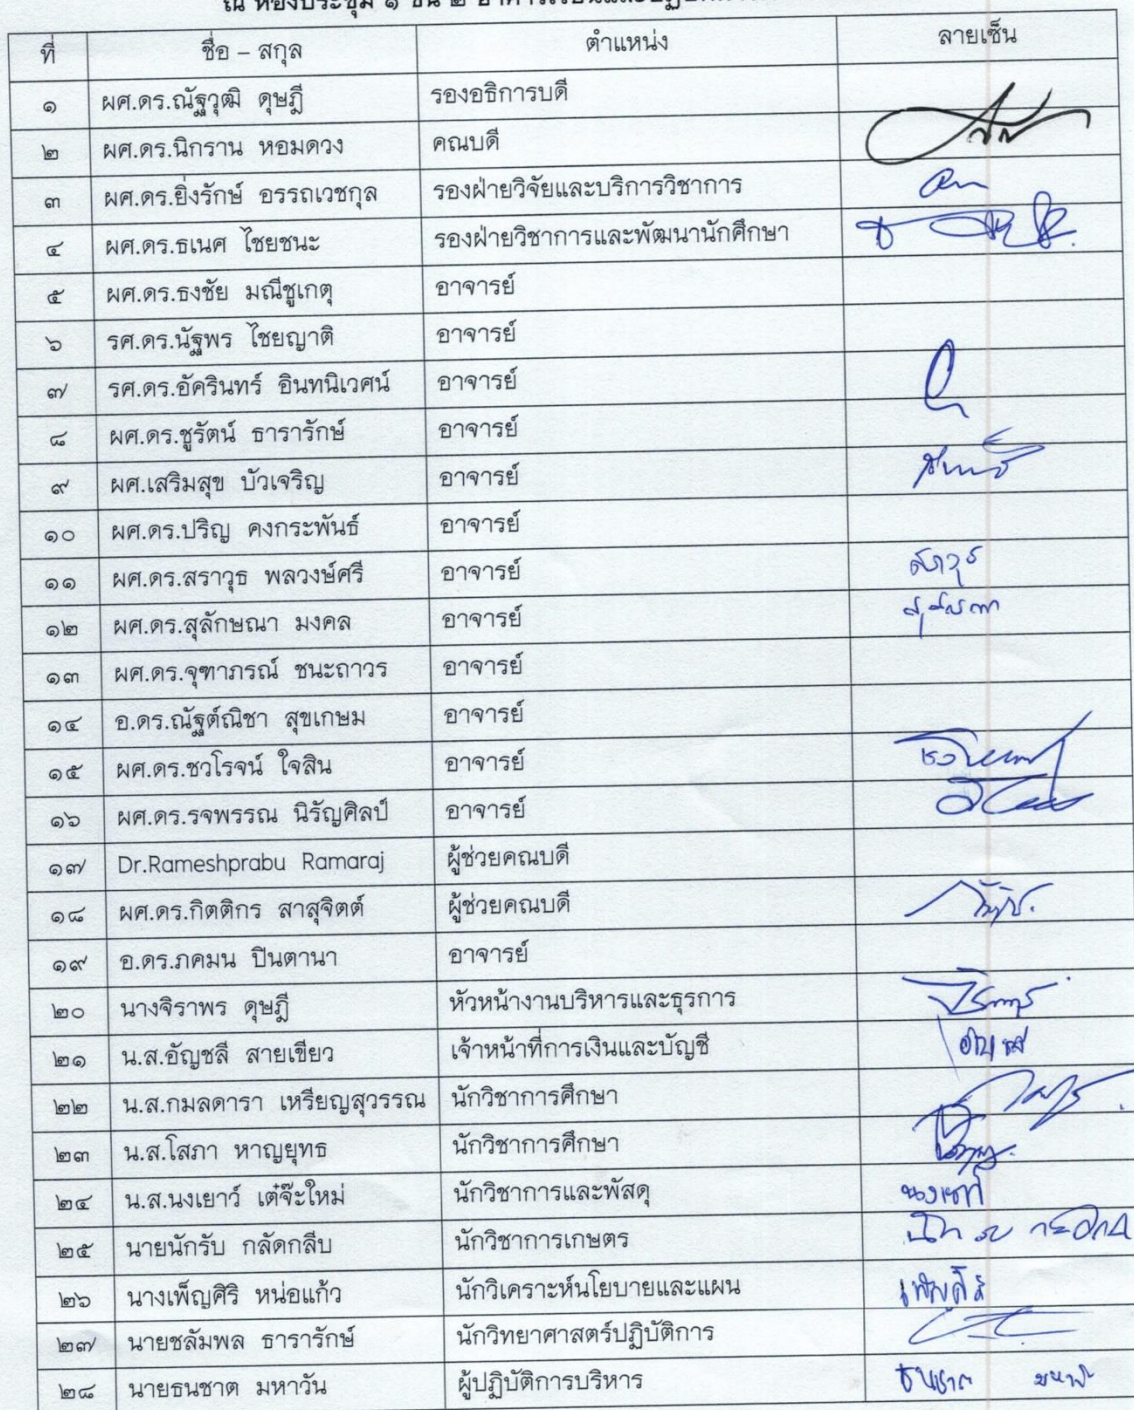 ณ ห้องประชุม ๑ ชั้น ๒ อาคารเรียนและปฏิบัติการ
ที่ ชื่อ – สกุล ตำแหน่ง ลายเซ็น
๑ ผศ.ดร.ณัฐวุฒิ ดุษฎี รองอธิการบดี
๒ ผศ.ดร.นิกราน หอมดวง คณบดี
๓ ผศ.ดร.ยิ่งรักษ์ อรรถเวชกุล รองฝ่ายวิจัยและบริการวิชาการ
๔ ผศ.ดร.ธเนศ ไชยชนะ รองฝ่ายวิชาการและพัฒนานักศึกษา
๕ ผศ.ดร.ธงชัย มณีชูเกตุ อาจารย์
๖ รศ.ดร.นัฐพร ไชยญาติ อาจารย์
๗ รศ.ดร.อัครินทร์ อินทนิเวศน์ อาจารย์
๘ ผศ.ดร.ชูรัตน์ ธารารักษ์ อาจารย์
๙ ผศ.เสริมสุข บัวเจริญ อาจารย์
๑๐ ผศ.ดร.ปริญ คงกระพันธ์ อาจารย์
๑๑ ผศ.ดร.สราวุธ พลวงษ์ศรี อาจารย์ สราวุธ
๑๒ ผศ.ดร.สุลักษณา มงคล อาจารย์
๑๓ ผศ.ดร.จุฑาภรณ์ ชนะถาวร อาจารย์
๑๔ อ.ดร.ณัฐต์ณิชา สุขเกษม อาจารย์
๑๕ ผศ.ดร.ชวโรจน์ ใจสิน อาจารย์
๑๖ ผศ.ดร.รจพรรณ นิรัญศิลป์ อาจารย์
๑๗ Dr.Rameshprabu Ramaraj ผู้ช่วยคณบดี
๑๘ ผศ.ดร.กิตติกร สาสุจิตต์ ผู้ช่วยคณบดี
๑๙ อ.ดร.ภคมน ปินตานา อาจารย์
๒๐ นางจิราพร ดุษฎี หัวหน้างานบริหารและธุรการ
๒๑ น.ส.อัญชลี สายเขียว เจ้าหน้าที่การเงินและบัญชี
๒๒ น.ส.กมลดารา เหรียญสุวรรณ นักวิชาการศึกษา
๒๓ น.ส.โสภา หาญยุทธ นักวิชาการศึกษา
๒๔ น.ส.นงเยาว์ เต๋จ๊ะใหม่ นักวิชาการและพัสดุ นงเยาว์
๒๕ นายนักรับ กลัดกลีบ นักวิชาการเกษตร
๒๖ นางเพ็ญศิริ หน่อแก้ว นักวิเคราะห์นโยบายและแผน เพ็ญศิริ
๒๗ นายชลัมพล ธารารักษ์ นักวิทยาศาสตร์ปฏิบัติการ
๒๘ นายธนชาต มหาวัน ผู้ปฏิบัติการบริหาร ธนชาต มหาวัน